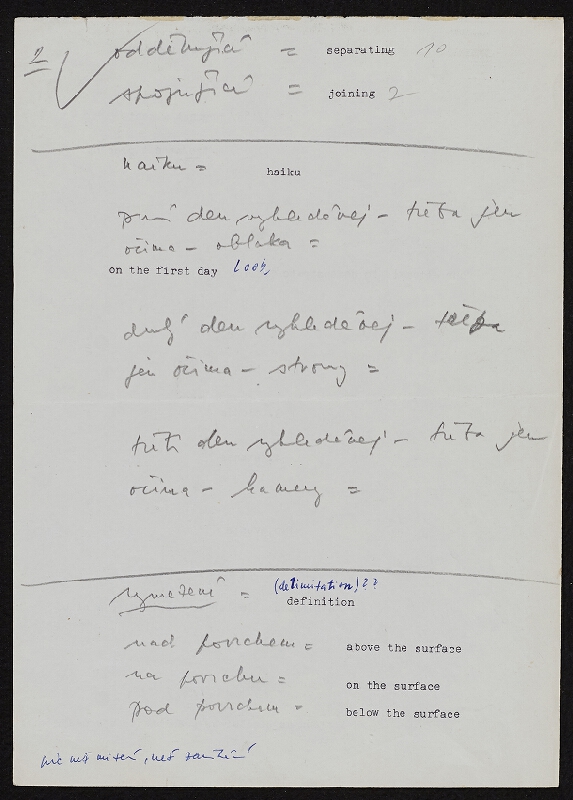 2
oddělující = separating 10
spojující = joining 2
haiku = haiku
první den vyhledávej – třeba jen
očima – oblaka =
on the first day look,
druhý den vyhledávej – třeba
jen očima – stromy =
třetí den vyhledávej – třeba jen
očima – kameny =
vymezení = (delimitation)??
definition
nad povrchem = above the surface
na povrchu = on the surface
pod povrchem = below the surface
než